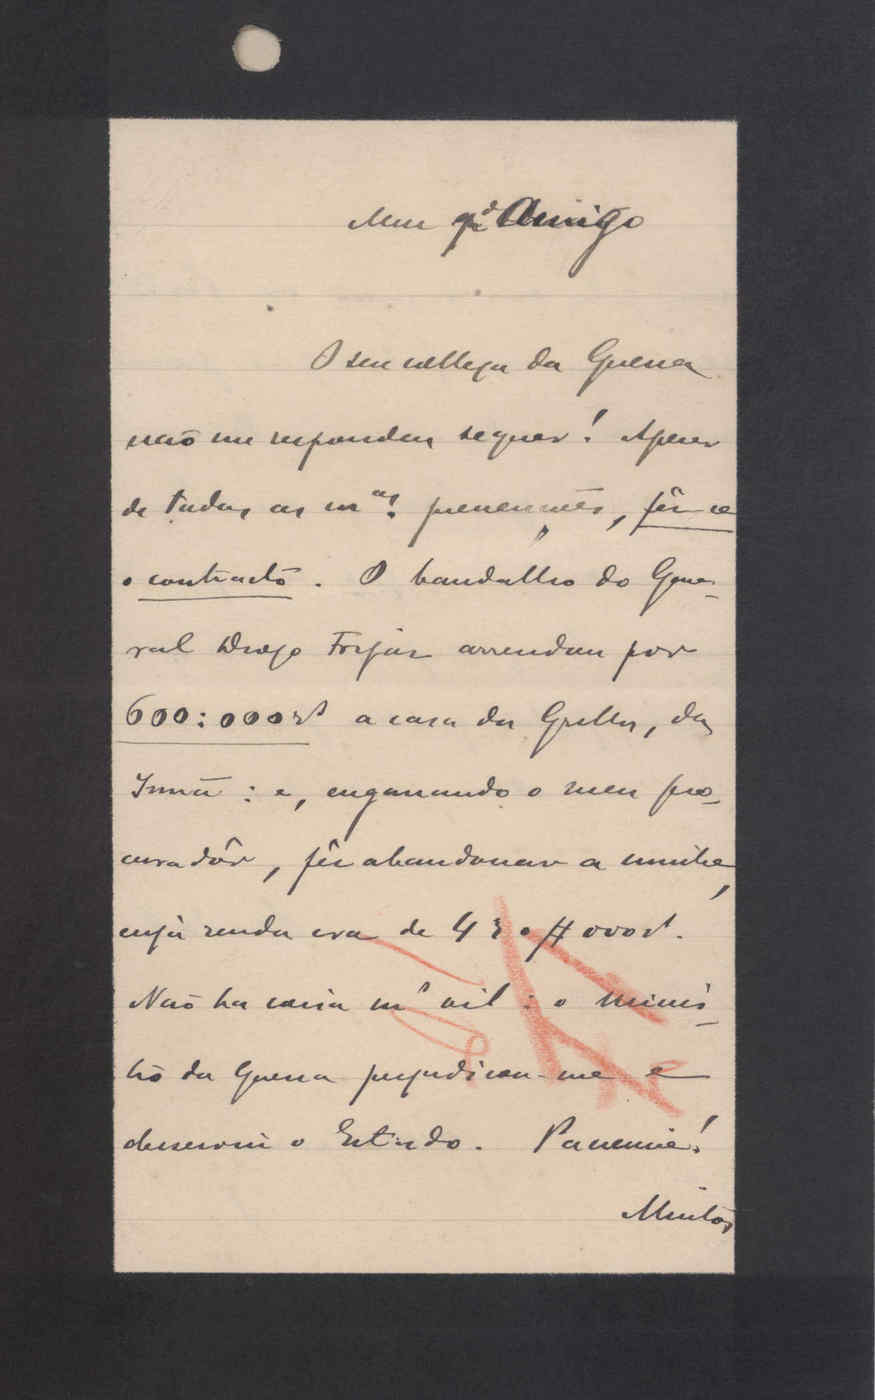 Meu qdo Amigo
O seu collega da Guerra
não me respondeu sequer! Apesar
de todas as mas prevenções, fês-se
o contracto. O bandalho do Gene-
ral Diogo arrendou por
600:000rs a casa da Grilla, da
Irmã: e, enganando o meu pro-
curadôr, fês abandonar a minha,
cuja renda era de 430#000rs.
Não ha coisa mo vil: o minis-
tro da Guerra prejudicou-me e
desserviu o Estado. Paciencia!
Muitos